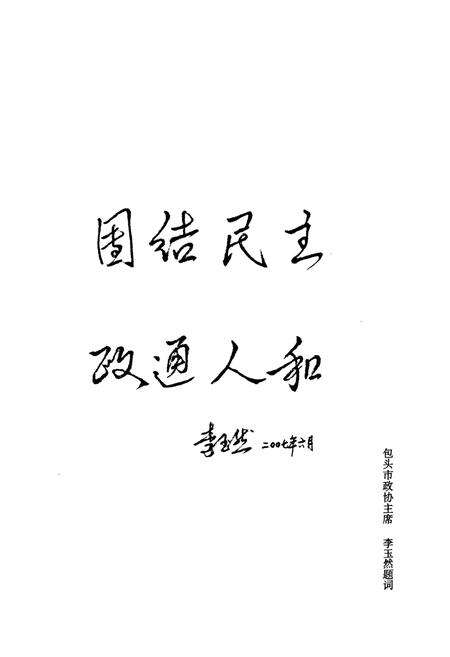 团结民主
政通人和
李玉然 二〇〇七年六月
包头市政协主席 李玉然题词